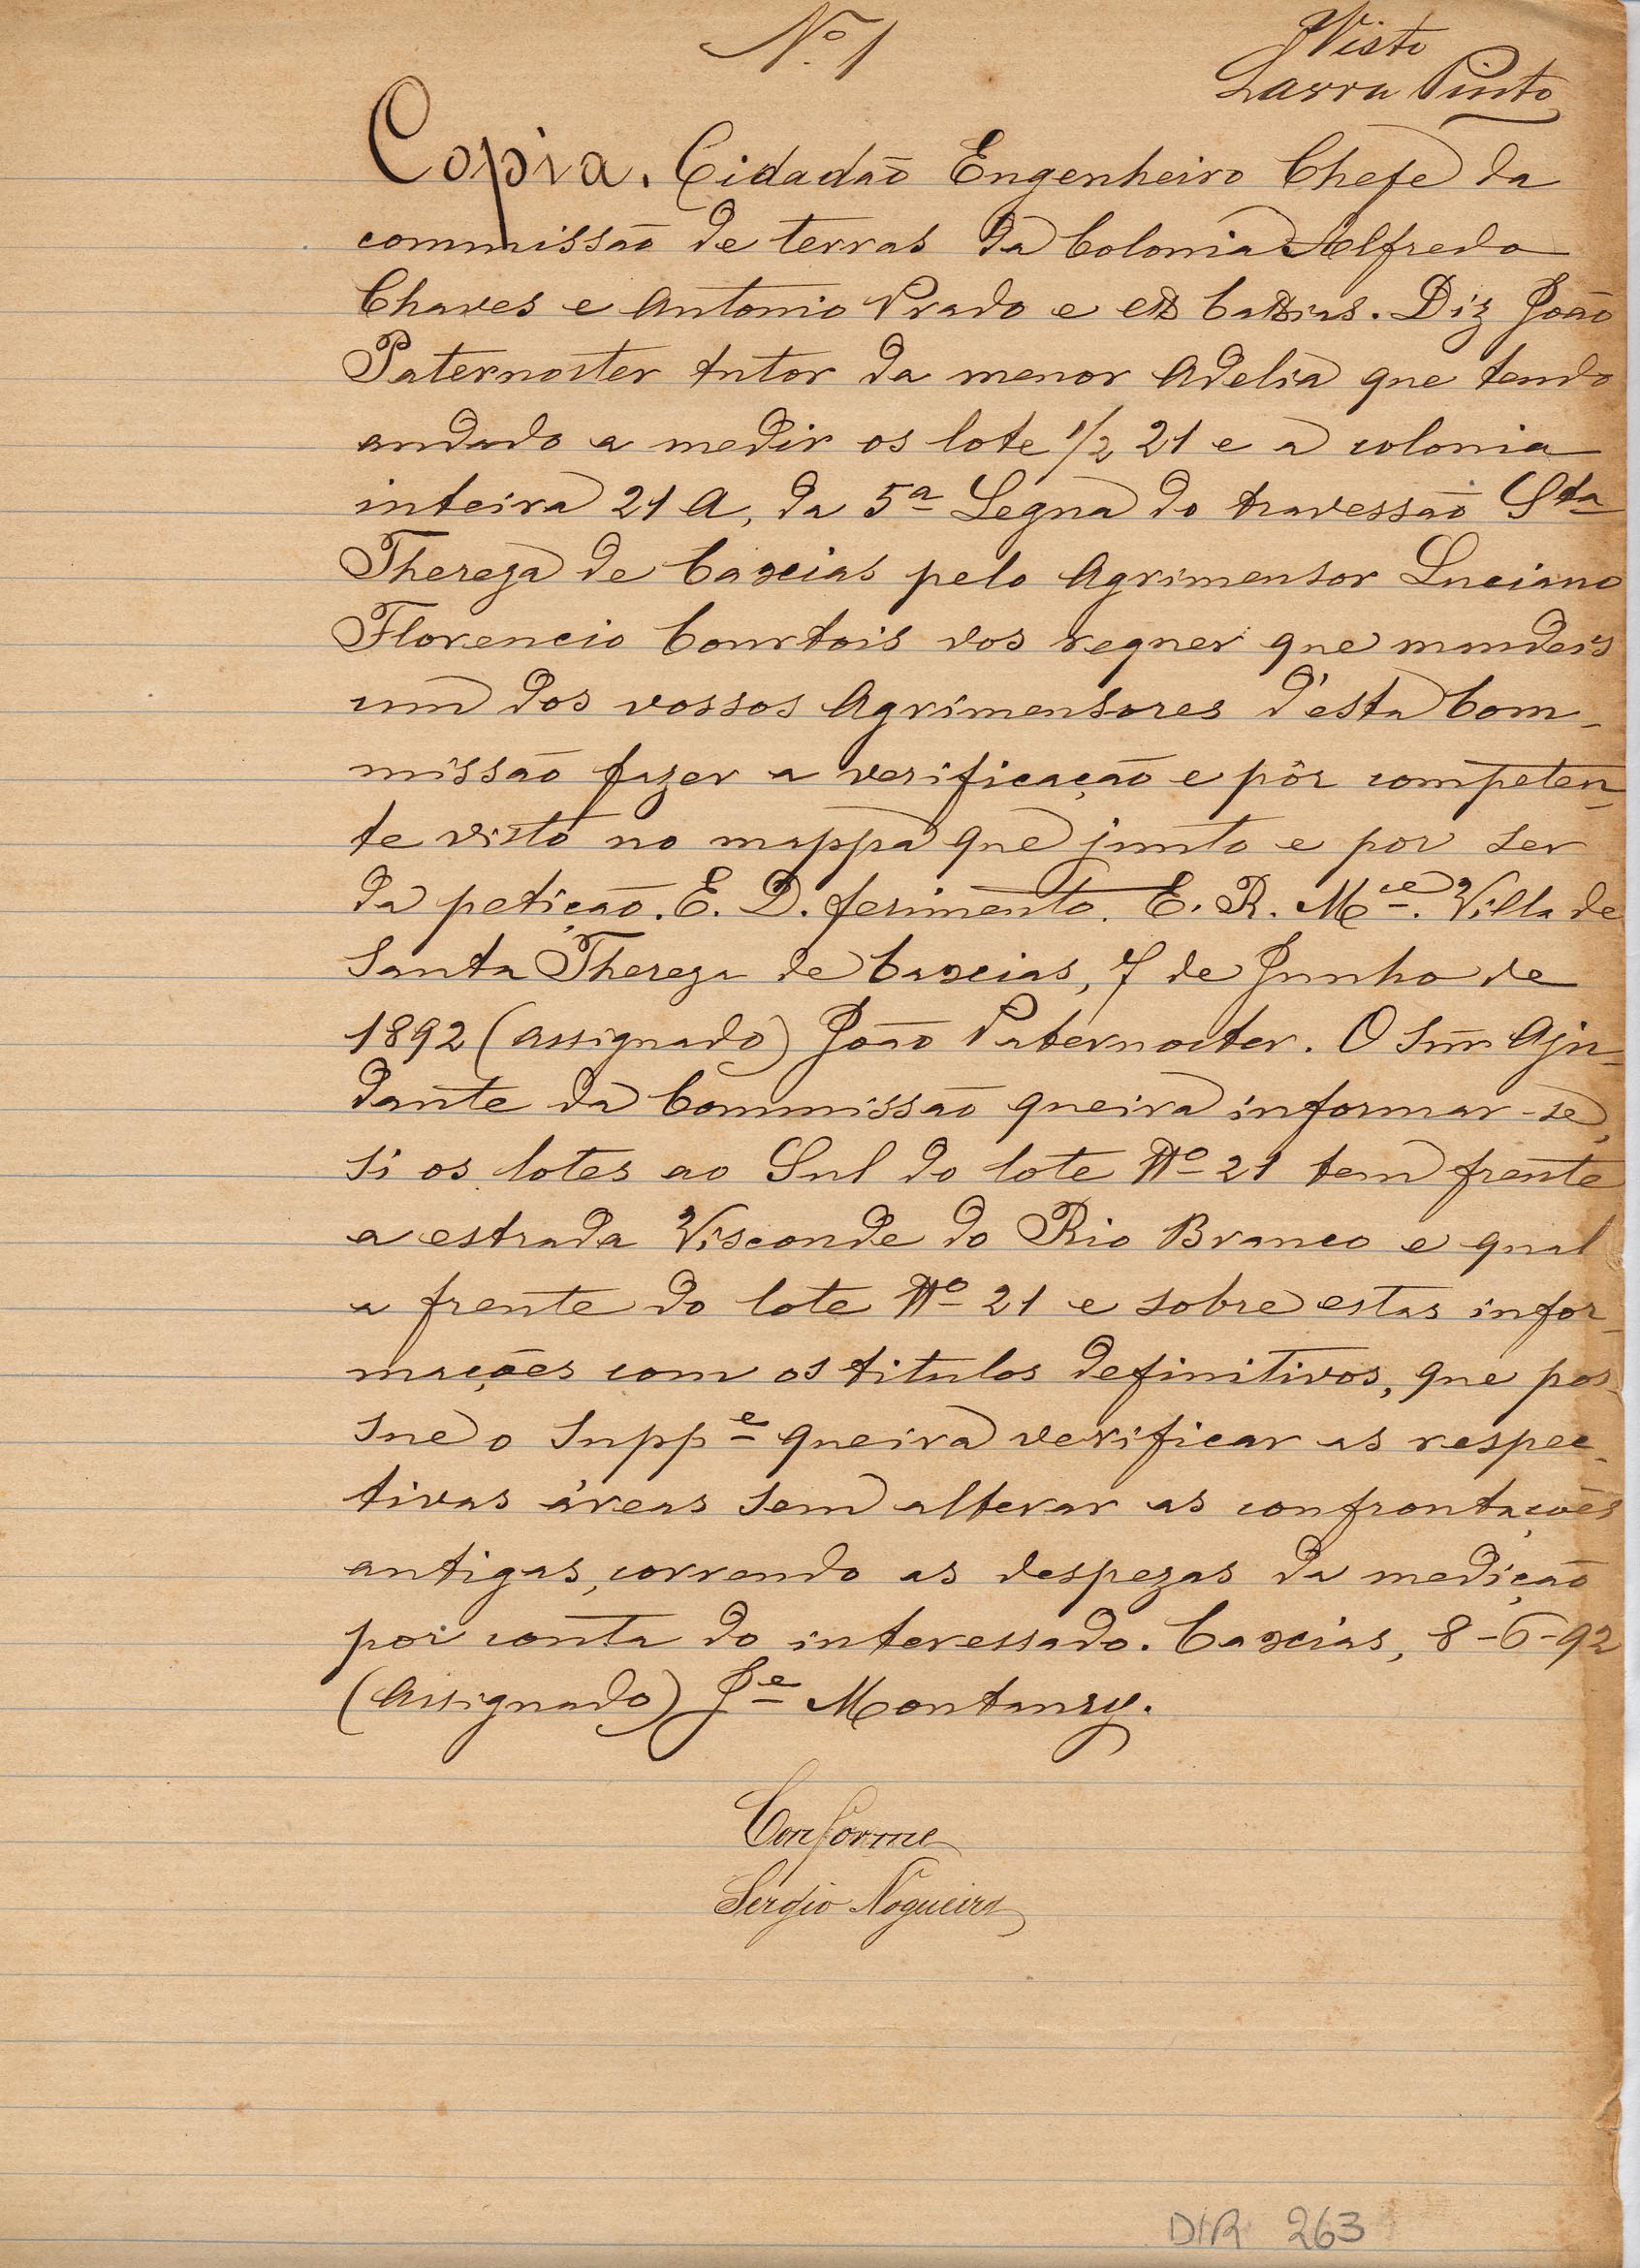 Nº 1
Visto
Larra Pinto
Copia. Cidadão Engenheiro Chefe da
commissão de terras da Colonia Alfredo
Chaves e Antonio Prado e ex Caxias. Diz João
Paternoster tutor da menor Adelia que tendo
andado a medir os lote 1/2 21 e a colonia
inteira 21 A, da 5ª Legua do travessão Sta
Thereza de Caxias pelo Agrimensor Luciano
Florencio Courtois vos requer que mandeis
um dos vossos Agrimensores d'esta Com-
missão fazer a verificação e pôr competen-
te visto no mappa que junto e por ser
da petição. E. D. ferimento. E. R. Mce. Villa de
Santa Thereza de Caxias, 7 de Junho de
1892 (assignado) João Paternoster. O Snr. Aju-
dante da Commissão queira informar-se,
si os lotes ao Sul do lote Nº 21 tem frente
a estrada Visconde do Rio Branco e qual
a frente do lote Nº 21 e sobre estas infor-
mações com os titulos definitivos, que pos-
sue o Suppe queira verificar as respec-
tivas áreas sem alterar as confrontações
antigas, correndo as despezas da medição
por conta do interessado. Caxias, 8-6-92
(Assignado) Je Montaury.
Conforme
Sergio Nogueira
DIR 263